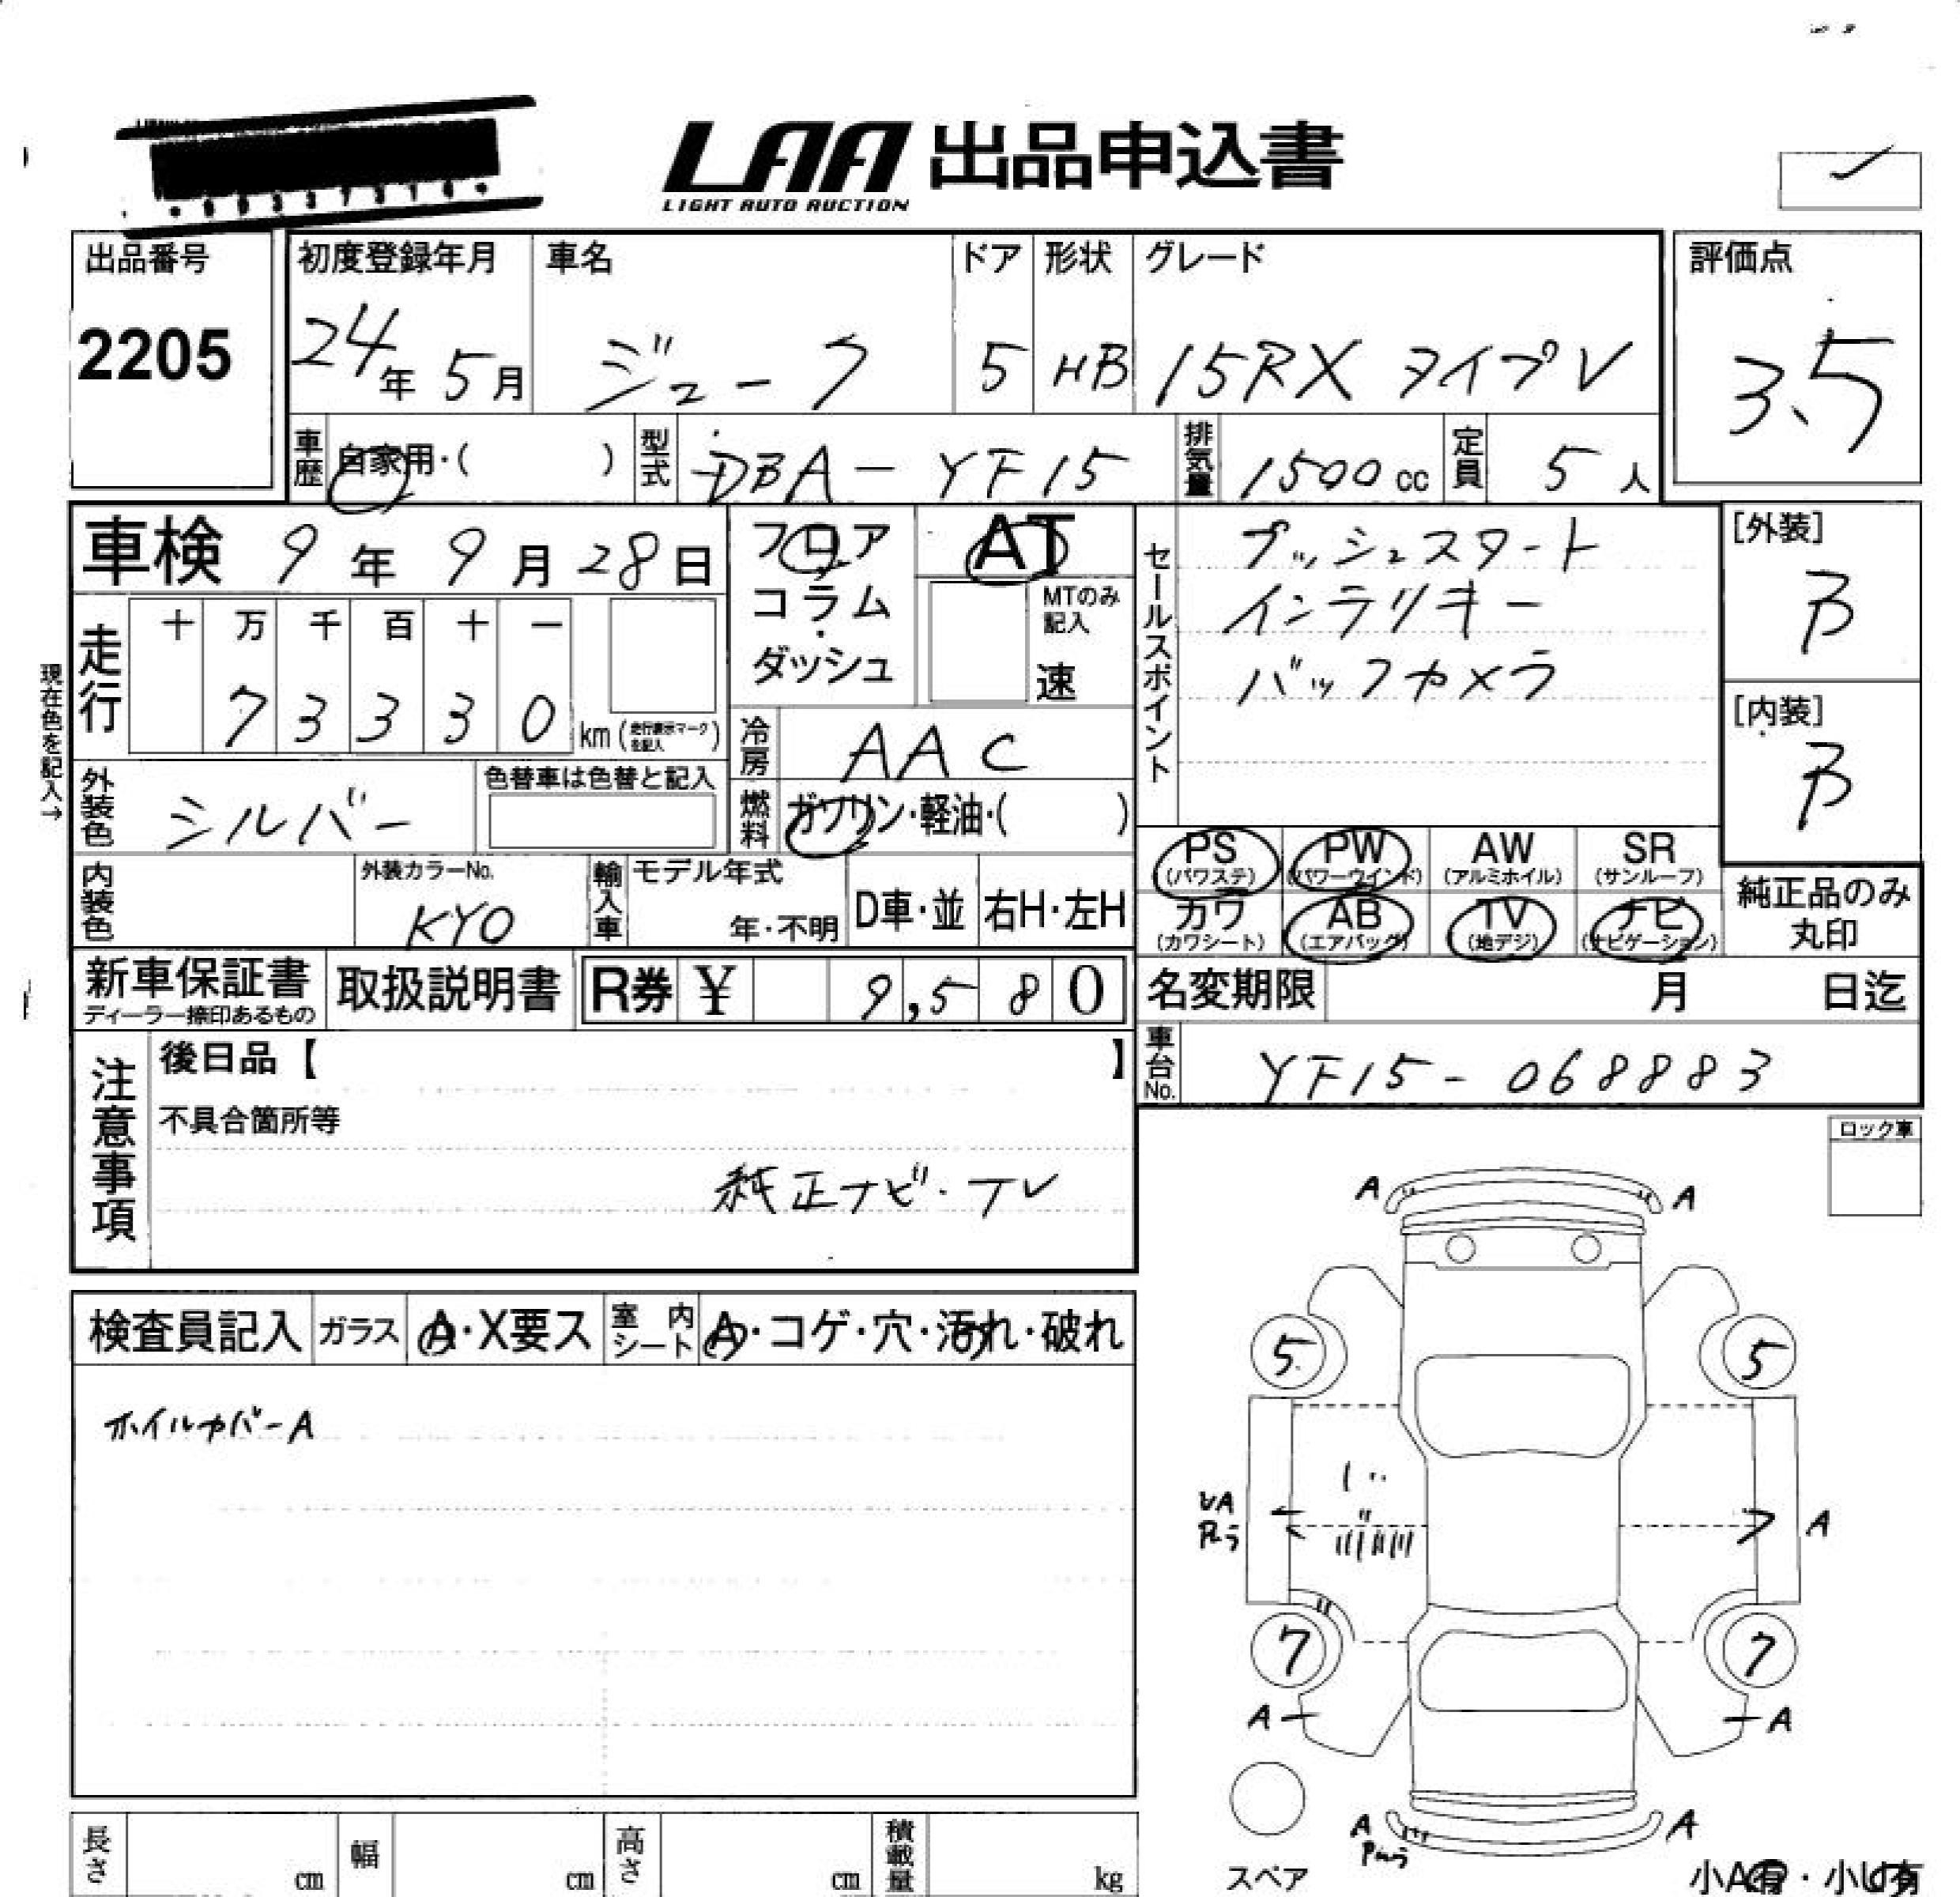 LAA 出品申込書
LIGHT AUTO AUCTION
出品番号
2205
初度登録年月
24年 5月
車名
ジューク
ドア
5
形状
HB
グレード
15RX タイプV
評価点
3.5
車歴 自家用・( )
型式 DBA-YF15
排気量 1500cc
定員 5人
車検 9年 9月 28日
フロア
コラム
・
ダッシュ
AT
MTのみ
記入
速
セールスポイント
プッシュスタート
インテリキー
バックカメラ
[外装]
B
[内装]
B
現在色を記入→
走行
十 万 千 百 十 一
7 3 3 3 0 km (走行表示マークを記入)
冷房 AAC
外装色 シルバー
色替車は色替と記入
燃料 ガソリン・軽油・( )
PS
(パワステ)
PW
(パワーウインド)
AW
(アルミホイル)
SR
(サンルーフ)
カワ
(カワシート)
AB
(エアバッグ)
TV
(地デジ)
ナビ
(ナビゲーション)
純正品のみ
丸印
内装色
外装カラーNo.
KYO
輸入車
モデル年式
年・不明
D車・並
右H・左H
新車保証書
ディーラー捺印あるもの
取扱説明書
R券 ¥ 9,580
名変期限 月 日迄
車台No. YF15-068883
注意事項
後日品【 】
不具合箇所等
純正ナビ・TV
ロック車
検査員記入
ガラス A・X要ス
室内シート A・コゲ・穴・汚れ・破れ
ホイルカバーA
A A
5 5
UA A
7 7
A A
A A
スペア
小A有・小U有
長さ cm
幅 cm
高さ cm
積載量 kg